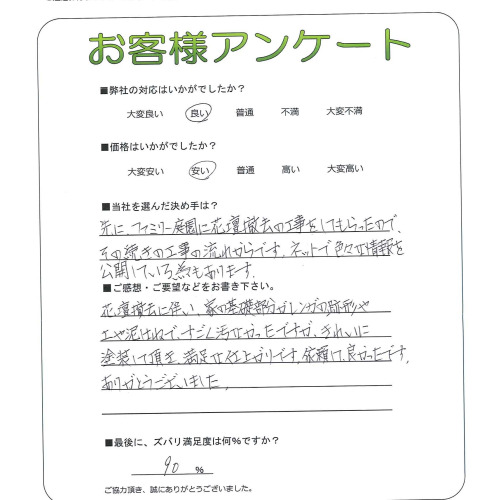 お客様アンケート
■弊社の対応はいかがでしたか？
大変良い 良い 普通 不満 大変不満
■価格はいかがでしたか？
大変安い 安い 普通 高い 大変高い
■当社を選んだ決め手は？
先に、ファミリー庭園に花壇撤去の工事をしてもらったので、
その続きの工事の流れからです。ネットで色々な情報を
公開している為もあります。
■ご感想・ご要望などをお書き下さい。
花壇撤去に伴い、家の基礎部分がレンガの跡形や
土や泥はねで、すごく汚なかったですが、きれいに
塗装して頂き、満足な仕上がりです。依頼して良かったです。
ありがとうございました。
■最後に、ズバリ満足度は何%ですか？
90 %
ご協力頂き、誠にありがとうございました。